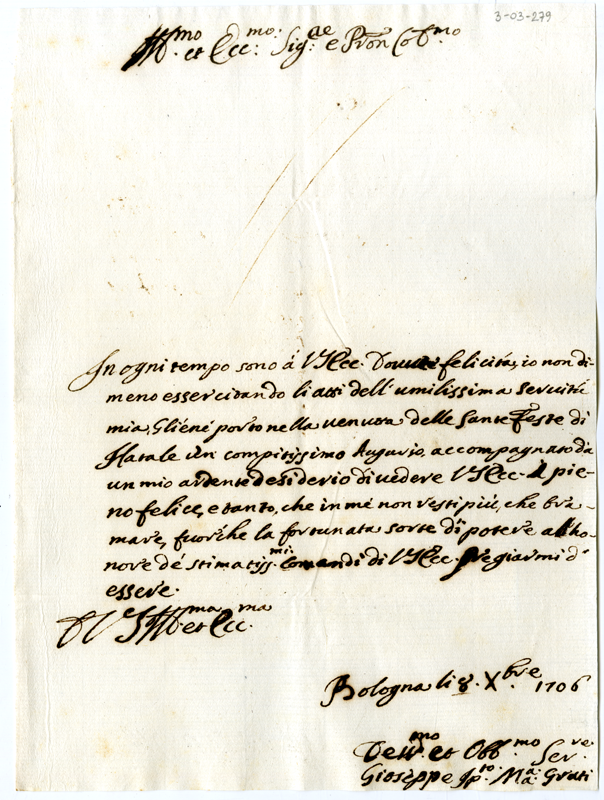 3-03-279
Ill.mo et Ecc.mo: Sig.re e Pron Col.mo
In ogni tempo sono á V. Ecc. Dovute felicitá, io non di-
meno essercitando li atti dell'umilissima servitú
mia, Gliené porto nella venuta delle Sante Feste di
Natale un compitissimo Augurio, accompagnato da
un mio ardente desiderio di vedere V. Ecc. A pie-
no felice, e tanto, che in mé non resti piú, che bra-
mare, fuorche la fortunata sorte di potere all'ho-
nore dé stimatiss.mi: Comandi di V. Ecc. pregiarmi d'
essere.
D V. S. Ill.ma et Ecc.ma
Bologna li 8. Xbre. 1706
Dev.mo et Obb.mo Ser.re
Gioseppe Ip.to Ma. Grati